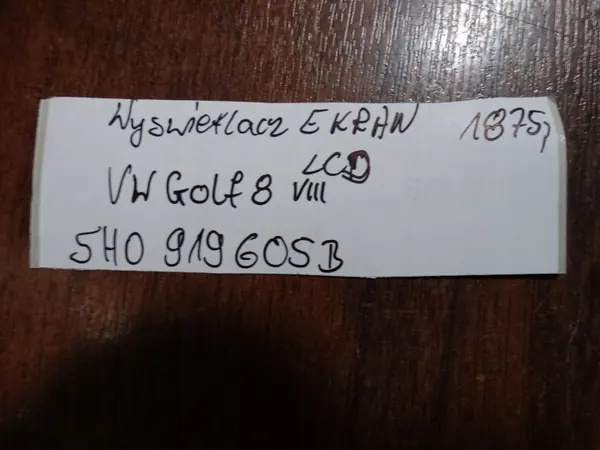 Wyswietlacz EKRAN 1875,
LCD
VW Golf 8 VIII
5H0 919 605B